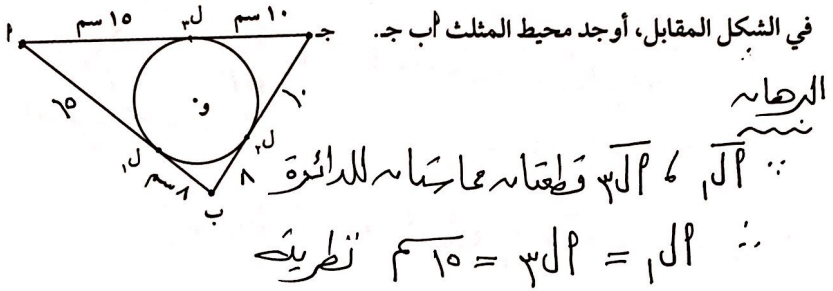 في الشكل المقابل، أوجد محيط المثلث أ ب جـ.
أ ١٥ سم ل٣ ١٠ سم جـ
١٥ و ١٠
ل١ ل٢
٨ سم ب ٨
البرهان
∵ أل١ ، أل٣ قطعتان مماستان للدائرة
∴ أل١ = أل٣ = ١٥ سم نظرية